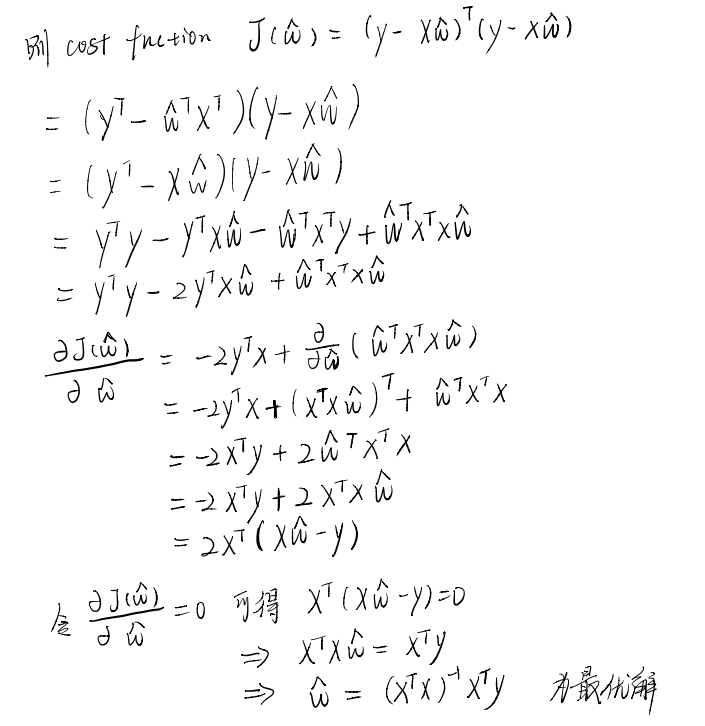 则 cost fnction J(ŵ) = (y - Xŵ)ᵀ(y - Xŵ)
= (yᵀ - ŵᵀXᵀ)(y - Xŵ)
= (yᵀ - Xŵ)(y - Xŵ)
= yᵀy - yᵀXŵ - ŵᵀXᵀy + ŵᵀXᵀXŵ
= yᵀy - 2yᵀXŵ + ŵᵀXᵀXŵ
∂J(ŵ)/∂ŵ = -2yᵀX + ∂/∂ŵ (ŵᵀXᵀXŵ)
= -2yᵀX + (XᵀXŵ)ᵀ + ŵᵀXᵀX
= -2Xᵀy + 2ŵᵀXᵀX
= -2Xᵀy + 2XᵀXŵ
= 2Xᵀ(Xŵ - y)
令 ∂J(ŵ)/∂ŵ = 0 可得 Xᵀ(Xŵ - y) = 0
⇒ XᵀXŵ = Xᵀy
⇒ ŵ = (XᵀX)⁻¹Xᵀy 为最优解